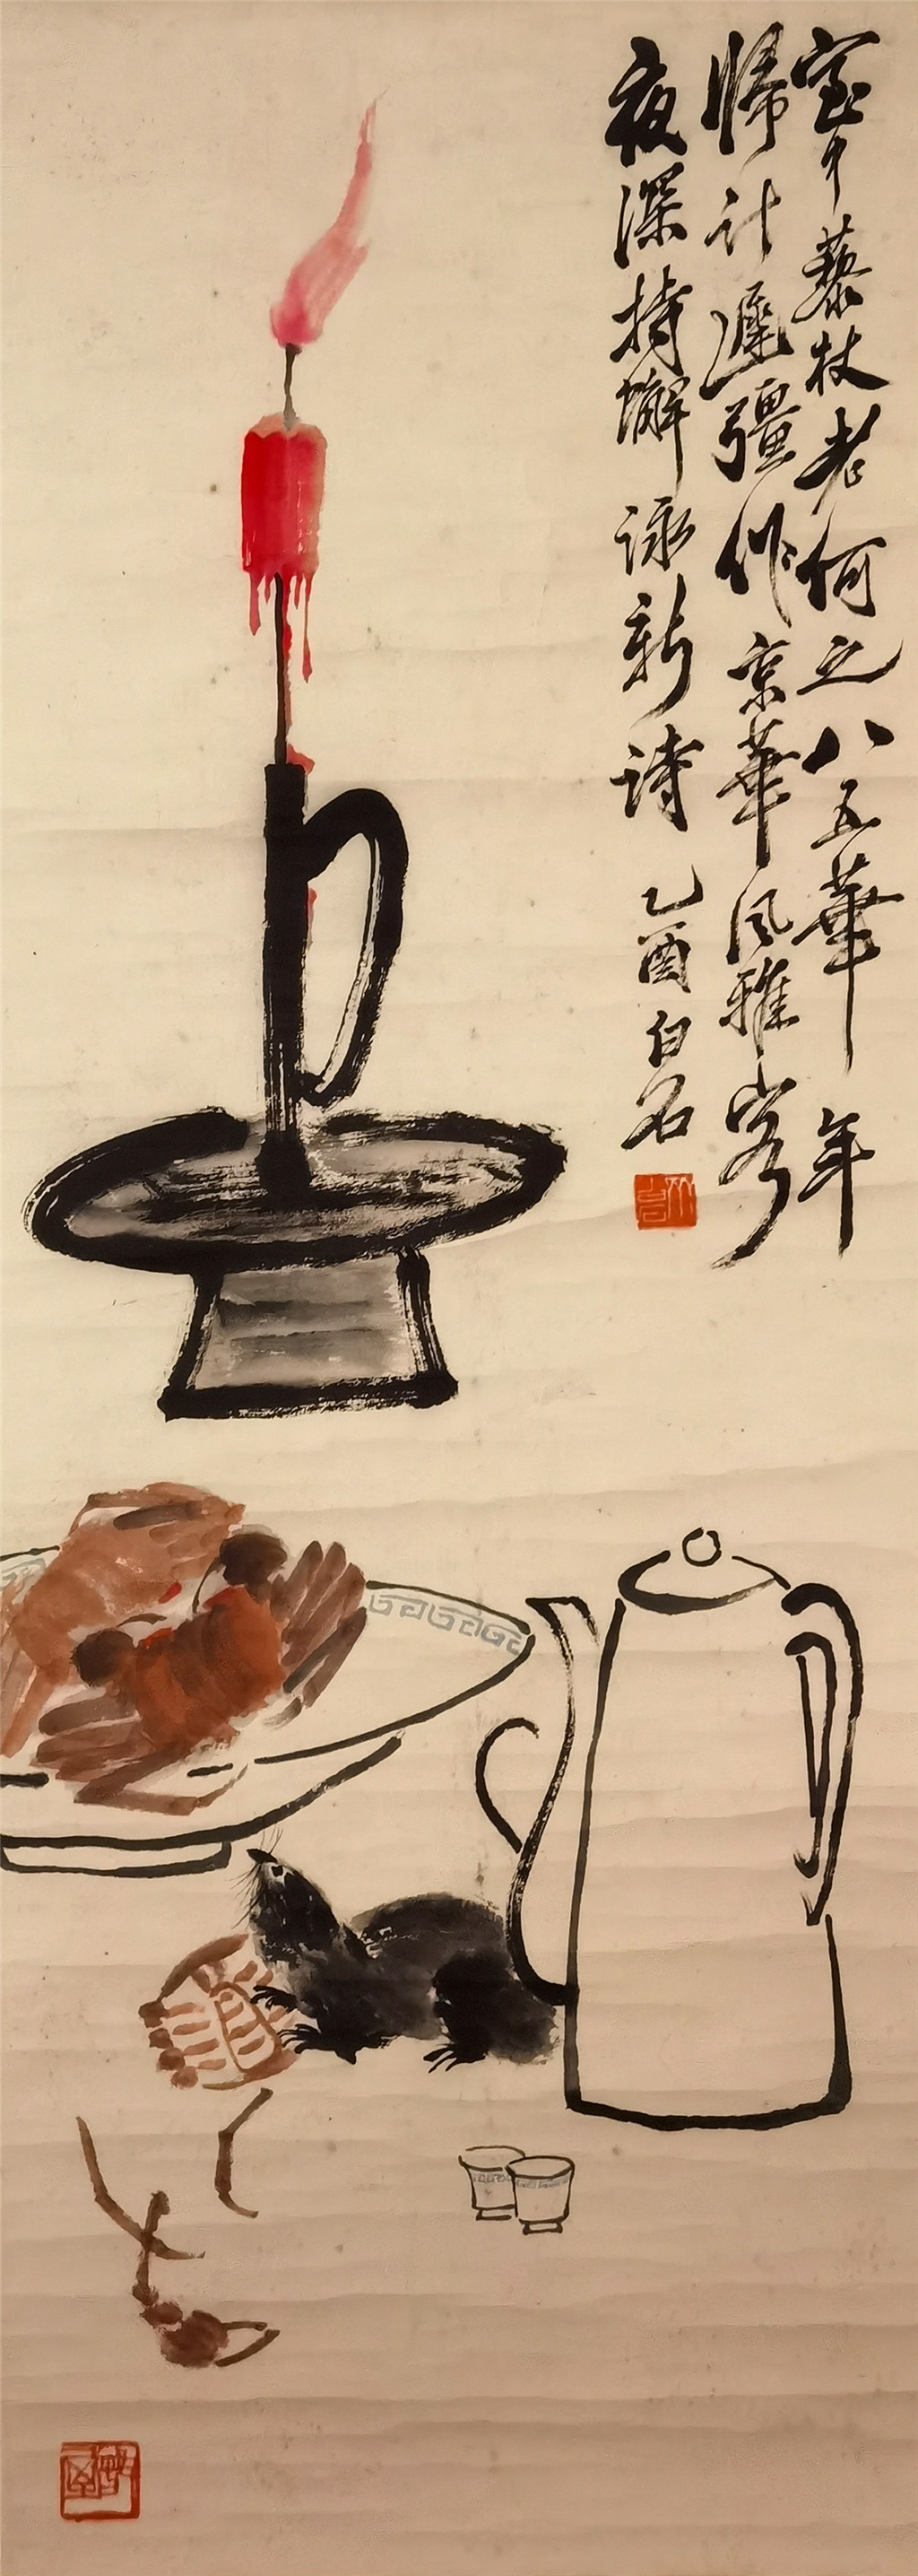 中藜杖老何之八五華年
歸計遲彊作京華風雅客
夜深持蠏詠新詩 乙酉白石